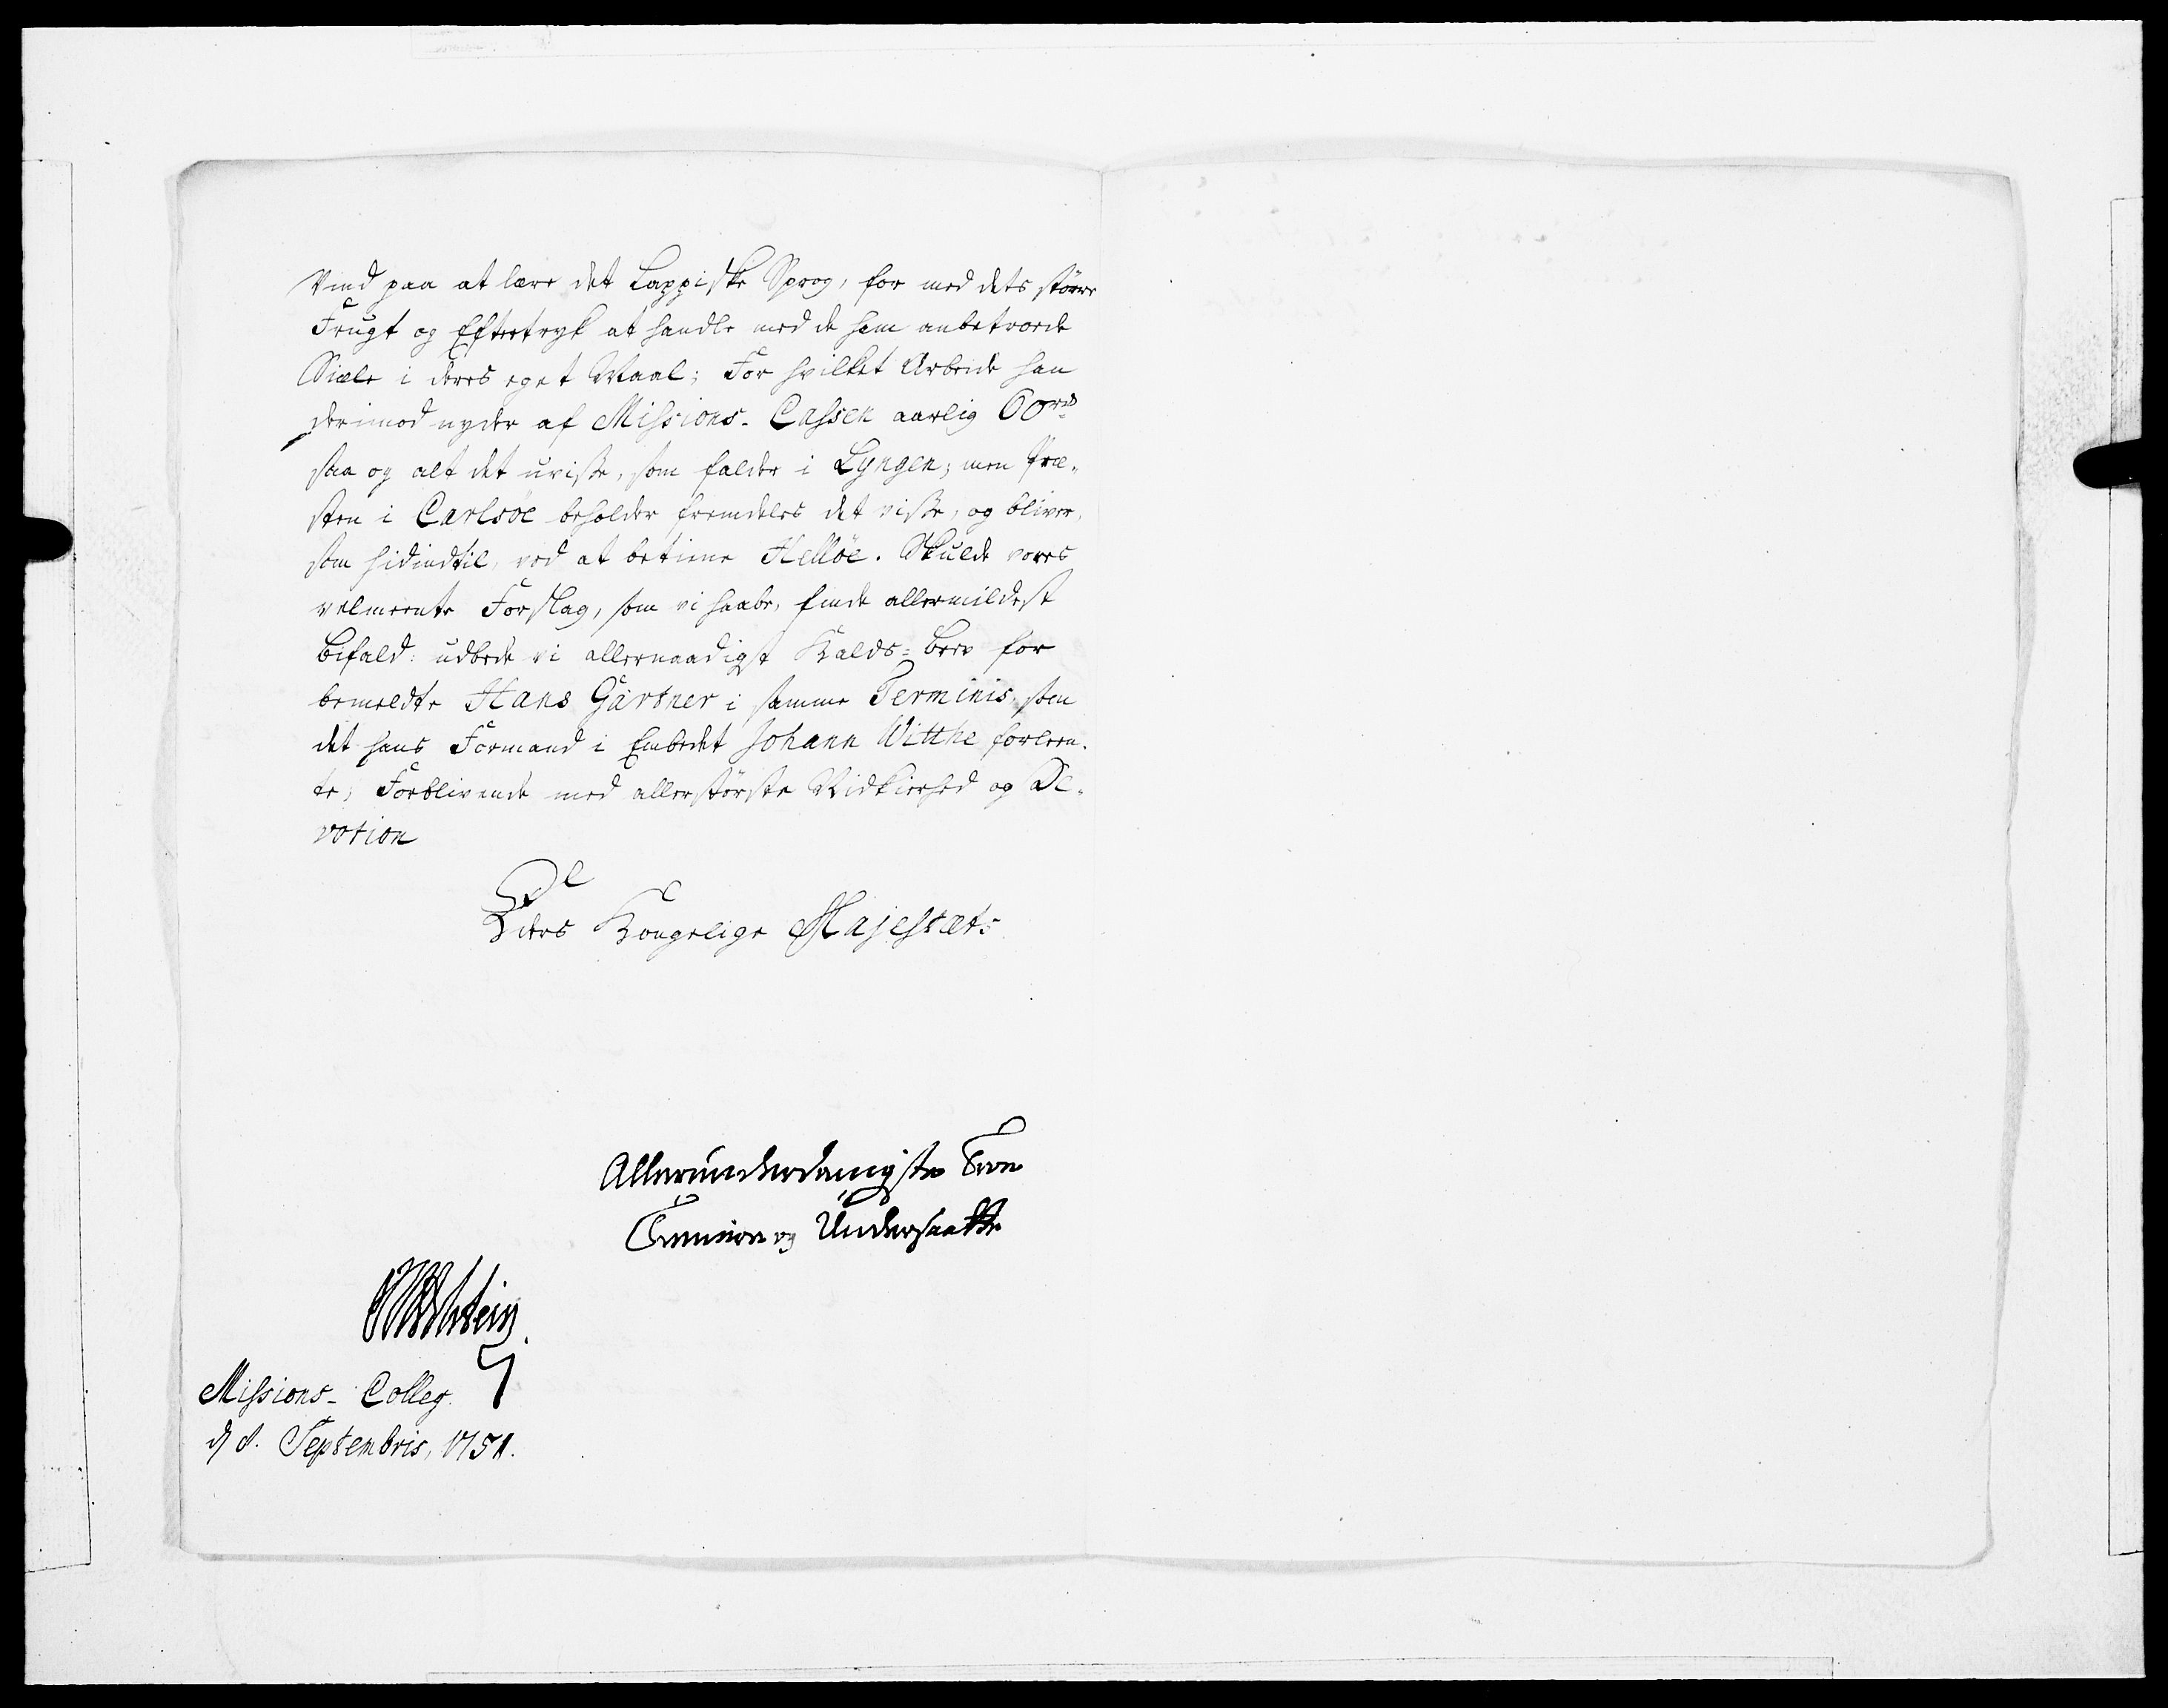 Vind paa at lære det Lappiske Sprog, for med dets større
Frugt og Eftertryk at handle med de ham anbetroede
Siæle i deres eget Maal; For hvilket Arbeide han
derimod nyder af Missions-Cassen aarlig 60 rd
saa og alt det uvisse, som falder i Lyngen; men Præ-
sten i Carlsöe beholder fremdeles det visse, og bliver,
som hidindtil, ved at betiene Hellöe. Skulde vores
velmeente Forslag, som vi haabe, finde allermildest
Bifald: udbede vi allernaadigst Kalds-Brev for
bemeldte Hans Gärtner i samme Terminis, som
det hans Formand i Embedet Johann Witthe forleen-
te; Forblivende med allerstørste Nidkierhed og De-
votion
Deres Kongelige Majestæts
Allerunderdanigste Troe
Tiennere og Undersaatter
Missions-Colleg.
d 8. Septembris, 1751.